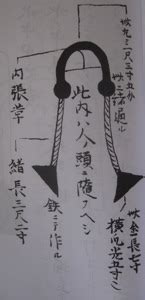 此丸ミ一尺三寸五分
此二諸通ル
此内ハ人ノ頭ニ随フヘシ
此金長七寸
横爪先五寸ニ
鉄ニテ作ル
内張革
緒長三尺二寸